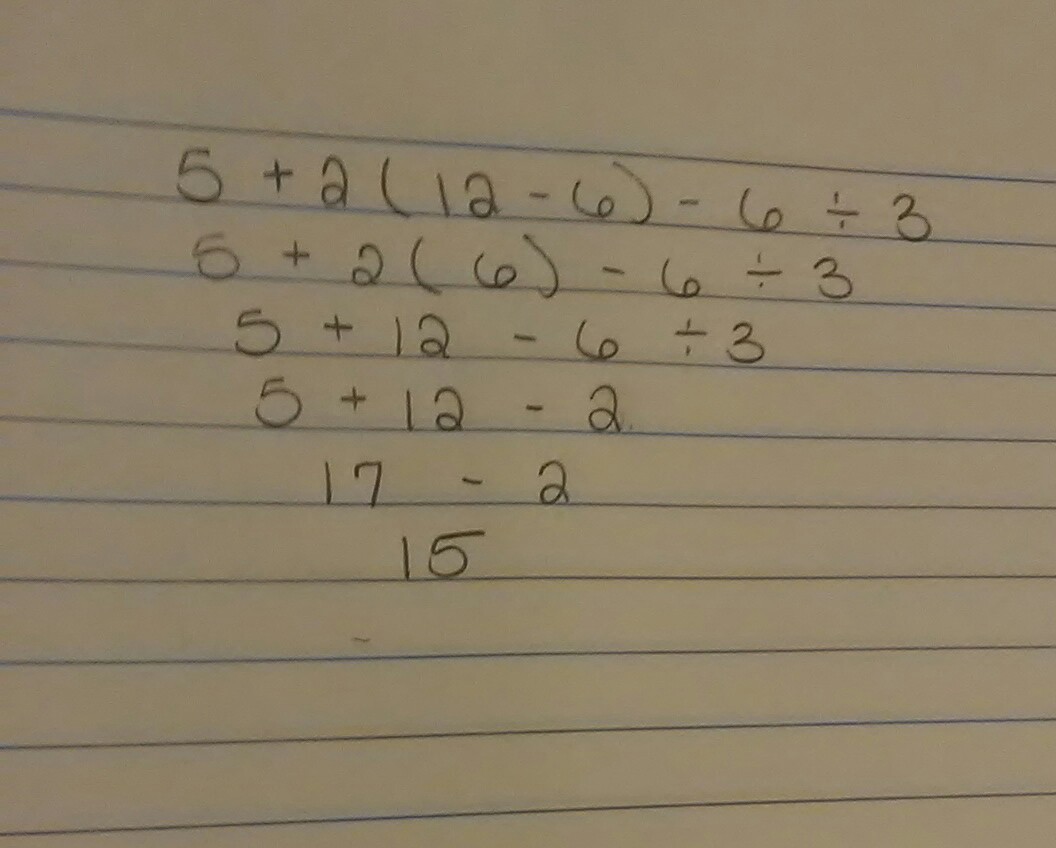 5 + 2 ( 12 - 6 ) - 6 ÷ 3
5 + 2 ( 6 ) - 6 ÷ 3
5 + 12 - 6 ÷ 3
5 + 12 - 2
17 - 2
15